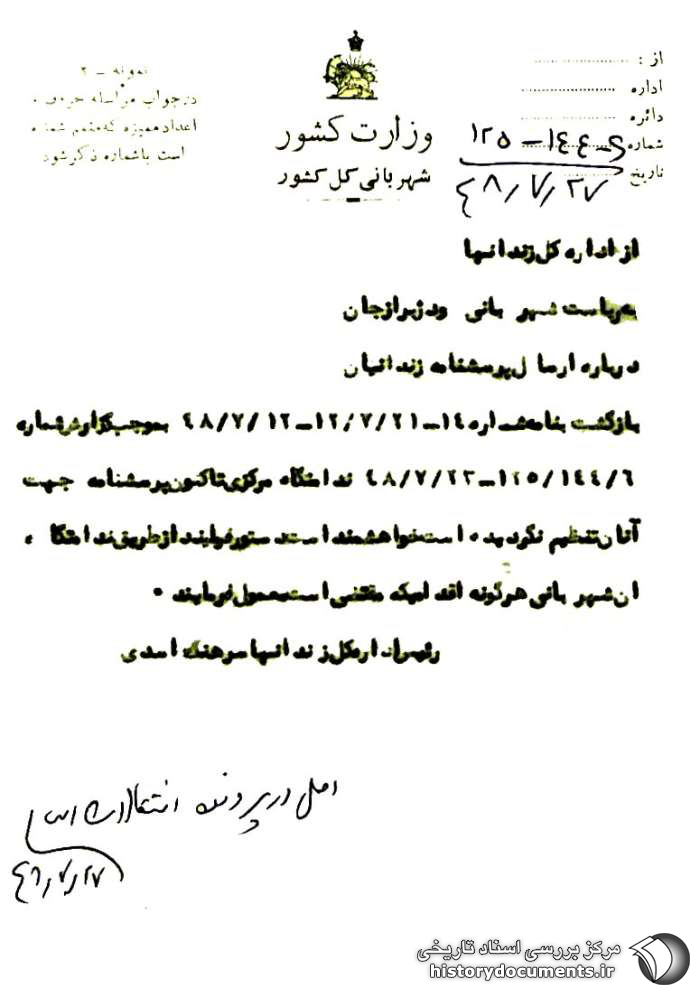 از :
اداره
دائره
شماره ۱۲۵-۱۴۴-۶
تاریخ ۴۸/۷/۲۷
وزارت کشور
شهربانی کل کشور
نمونه - ۲
در جواب مراسله حروف و
اعداد ممیزه که متمم شماره
است با شماره ذکر شود
از اداره کل زندانها
به ریاست شهربانی دژ برازجان
درباره ارسال پرسشنامه زندانیان
بازگشت بنامه شماره ۱۴-۱۲/۷/۲۱-۴۸/۷/۱۲ بموجب گزارش شماره
۱۲۵/۱۴۴/۶-۴۸/۷/۲۳ ندامتگاه مرکزی تاکنون پرسشنامه جهت
آنان تنظیم نگردیده است خواهشمند است دستور فرمایند از طریق ندامتگاه
ان شهربانی هرگونه اقدامیکه مقتضی است معمول فرمایند .
رئیس اداره کل زندانها سرهنگ اسدی
اصل در پرونده انتقالات است
۴۸/۷/۲۷
مرکز بررسی اسناد تاریخی
historydocuments.ir